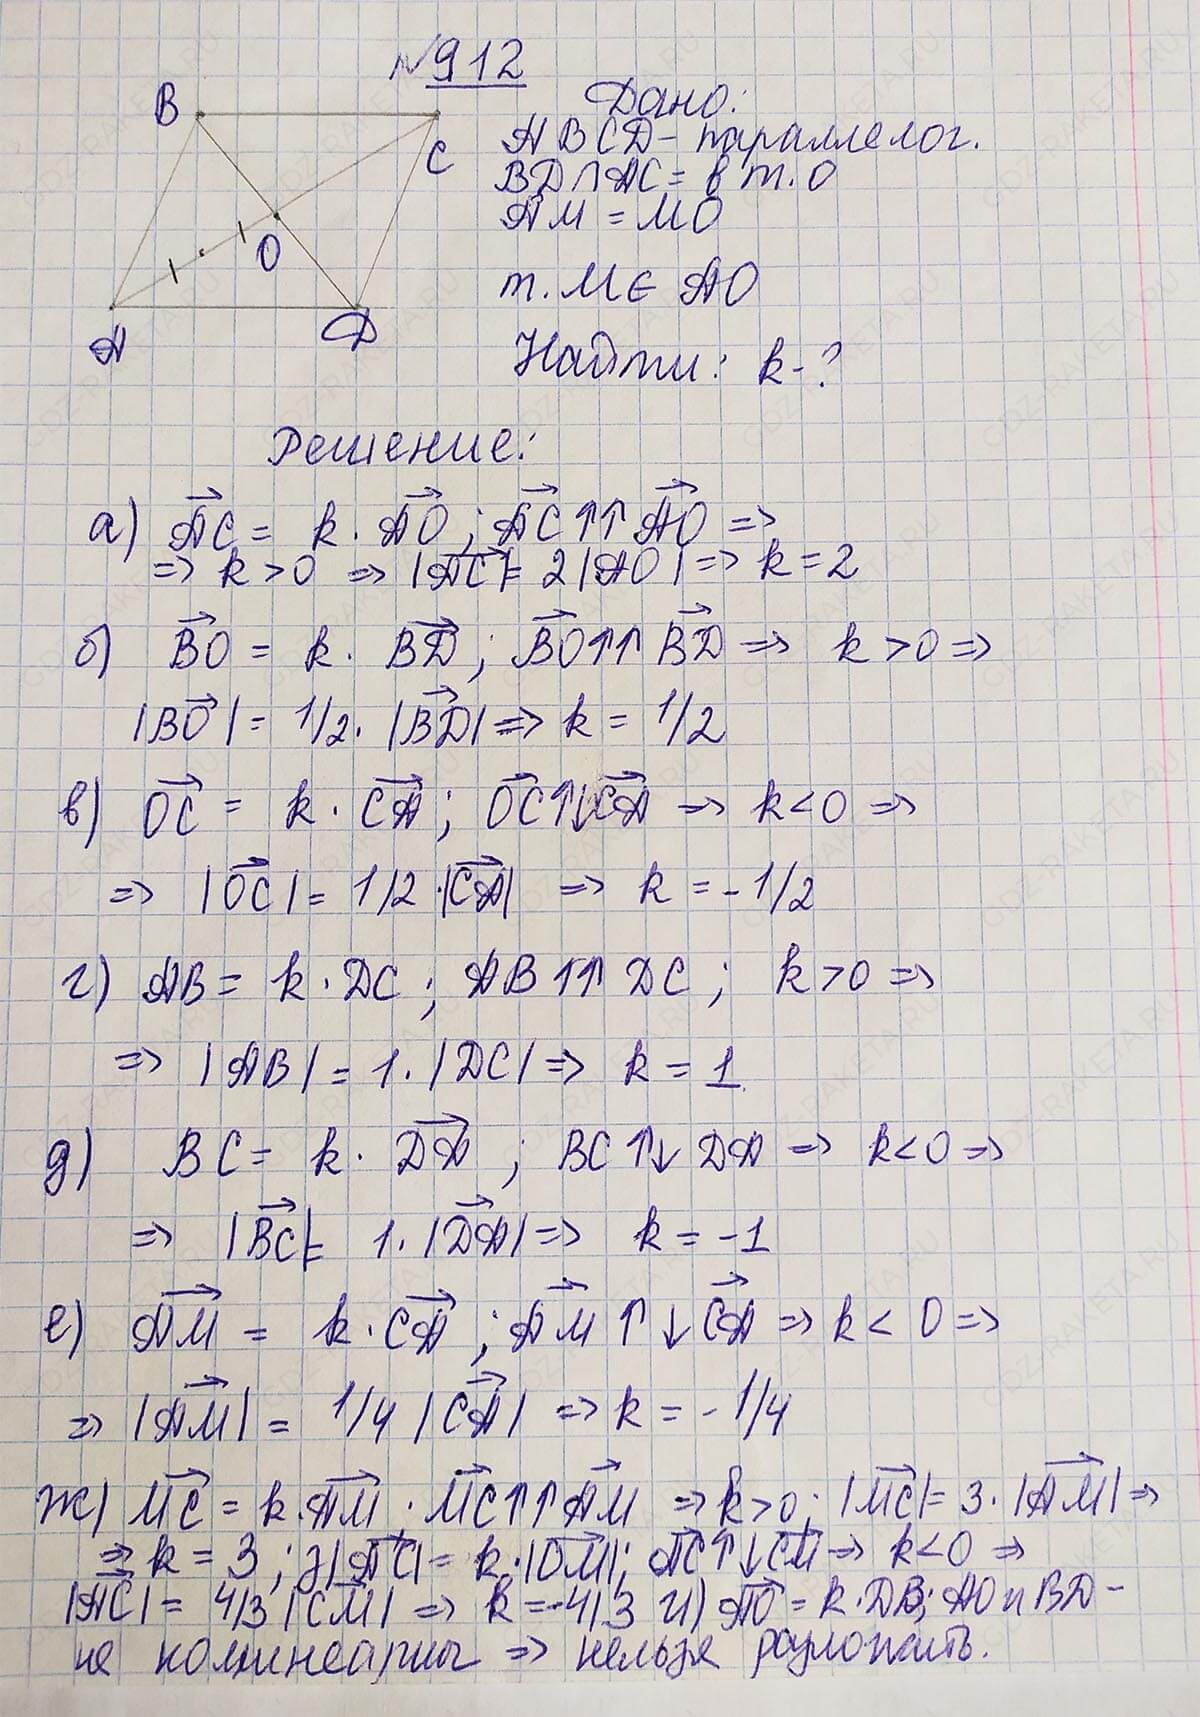 №912
B
C
O
A
D
Дано:
ABCD - параллелог.
BD∩AC = в т. O
AM = MO
т. M ∈ AO
Найти: k-?
Решение:
а) AC = k · AO ; AC ↑↑ AO =>
=> k > 0 => |AC| = 2|AO| => k = 2
б) BO = k · BD ; BO ↑↑ BD => k > 0 =>
|BO| = 1/2 · |BD| => k = 1/2
в) OC = k · CA ; OC ↑↓ CA => k < 0 =>
=> |OC| = 1/2 · |CA| => k = -1/2
г) AB = k · DC ; AB ↑↑ DC ; k > 0 =>
=> |AB| = 1 · |DC| => k = 1
д) BC = k · DA ; BC ↑↓ DA => k < 0 =>
=> |BC| = 1 · |DA| => k = -1
е) AM = k · CA ; AM ↑↓ CA => k < 0 =>
=> |AM| = 1/4 |CA| => k = -1/4
ж) MC = k · AM · MC ↑↑ AM => k > 0 ; |MC| = 3 · |AM| =>
=> k = 3 ; з) |AC| = k · |OM| ; AC ↑↓ CM => k < 0 =>
|AC| = 4/3 |CM| => k = -4/3 и) AO = k · DB ; AO и BD -
не коллинеарны => нельзя разложить.